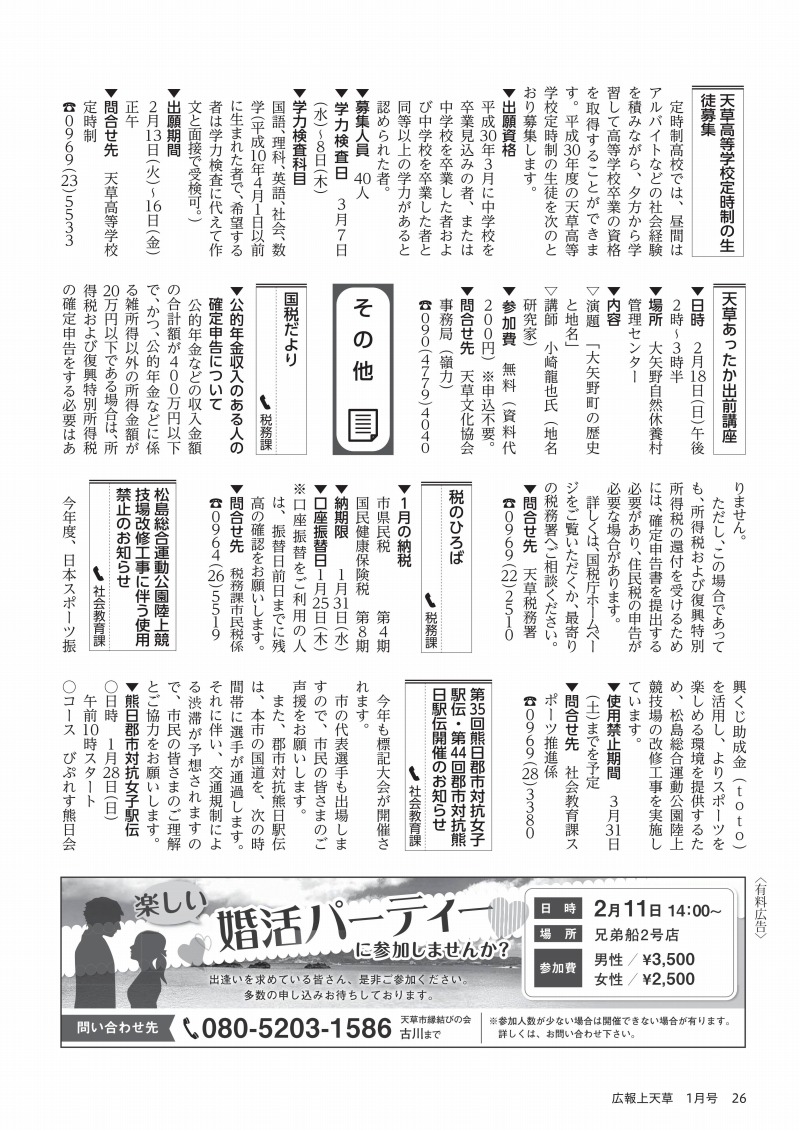 天草高等学校定時制の生
徒募集
　定時制高校では、昼間は
アルバイトなどの社会経験
を積みながら、夕方から学
習して高等学校卒業の資格
を取得することができま
す。平成30年度の天草高等
学校定時制の生徒を次のと
おり募集します。
▼出願資格
　平成30年３月に中学校を
卒業見込みの者、または
中学校を卒業した者およ
び中学校を卒業した者と
同等以上の学力があると
認められた者。
▼募集人員　40人
▼学力検査日　３月７日
（水）〜８日（木）
▼学力検査科目
国語、理科、英語、社会、数
学（平成10年４月１日以前
に生まれた者で、希望する
者は学力検査に代えて作
文と面接で受検可。）
▼出願期間
２月13日（火）〜16日（金）
正午
▼問合せ先　天草高等学校
定時制
☎０９６９（23）５５３３
天草あったか出前講座
▼日時　２月18日（日）午後
２時〜３時半
▼場所　大矢野自然休養村
管理センター
▼内容
▽演題　「大矢野町の歴史
と地名」
▽講師　小崎龍也氏（地名
研究家）
▼参加費　無料（資料代
２００円）※申込不要。
▼問合せ先　天草文化協会
事務局（嶺力）
☎０９０（４７７９）４０４０
その他
国税だより
税務課
▼公的年金収入のある人の
確定申告について
　公的年金などの収入金額
の合計額が４００万円以下
で、かつ、公的年金などに係
る雑所得以外の所得金額が
20万円以下である場合は、所
得税および復興特別所得税
の確定申告をする必要はあ
りません。
　ただし、この場合であって
も、所得税および復興特別
所得税の還付を受けるため
には、確定申告書を提出する
必要があり、住民税の申告が
必要な場合があります。
　詳しくは、国税庁ホームペー
ジをご覧いただくか、最寄り
の税務署へご相談ください。
▼問合せ先　天草税務署
☎０９６９（22）２５１０
税のひろば
税務課
▼１月の納税
市県民税　　　　第４期
国民健康保険税　第８期
▼納期限　１月31日（水）
▼口座振替日　１月25日（木）
※口座振替をご利用の人
は、振替日前日までに残
高の確認をお願いします。
▼問合せ先　税務課市民税係
☎０９６４（26）５５１９
松島総合運動公園陸上競
技場改修工事に伴う使用
禁止のお知らせ
社会教育課
　今年度、日本スポーツ振
興くじ助成金（ｔｏｔｏ）
を活用し、よりスポーツを
楽しめる環境を提供するた
め、松島総合運動公園陸上
競技場の改修工事を実施し
ています。
▼使用禁止期間　３月31日
（土）までを予定
▼問合せ先　社会教育課ス
ポーツ推進係
☎０９６９（28）３３８０
第35回熊日郡市対抗女子
駅伝・第44回郡市対抗熊
日駅伝開催のお知らせ
社会教育課
　今年も標記大会が開催さ
れます。
　市の代表選手も出場しま
すので、市民の皆さまのご
声援をお願いします。
　また、郡市対抗熊日駅伝
は、本市の国道を、次の時
間帯に選手が通過します。
それに伴い、交通規制によ
る渋滞が予想されますの
で、市民の皆さまのご理解
とご協力をお願いします。
▼熊日郡市対抗女子駅伝
〇日時　１月28日（日）
午前10時スタート
〇コース　びぷれす熊日会
〈有料広告〉
楽しい
婚活パーティー
に参加しませんか？
出逢いを求めている皆さん、是非ご参加ください。
多数の申し込みお待ちしております。
日　時　2月11日 14：00〜
場　所　兄弟船2号店
参加費　男性／¥3,500
女性／¥2,500
問い合わせ先　080-5203-1586　天草市縁結びの会
古川まで
※参加人数が少ない場合は開催できない場合が有ります。
詳しくは、お問い合わせ下さい。
広報上天草　1月号　26